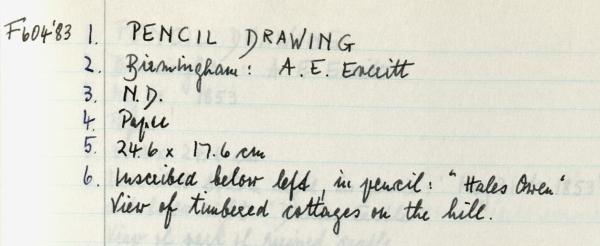 F604'83 1. PENCIL DRAWING
2. Birmingham: A. E. Everitt
3. N.D.
4. Paper
5. 24.6 x 17.6 cm
6. Inscribed below left, in pencil: "Hales Owen"
View of timbered cottages on the hill.